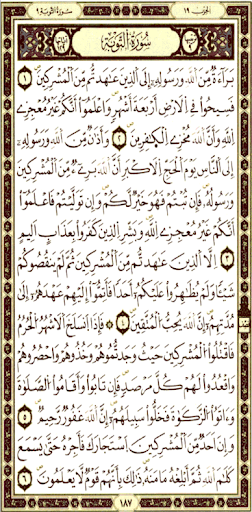 الحزب ١٩ سورة التوبة ٩
سُورَةُ التَّوْبَةِ
بَرَآءَةٌ مِّنَ اللَّهِ وَرَسُولِهِ إِلَى الَّذِينَ عَاهَدتُّم مِّنَ الْمُشْرِكِينَ ١
فَسِيحُوا فِي الْأَرْضِ أَرْبَعَةَ أَشْهُرٍ وَاعْلَمُوا أَنَّكُمْ غَيْرُ مُعْجِزِي
اللَّهِ وَأَنَّ اللَّهَ مُخْزِي الْكَافِرِينَ ٢ وَأَذَانٌ مِّنَ اللَّهِ وَرَسُولِهِ
إِلَى النَّاسِ يَوْمَ الْحَجِّ الْأَكْبَرِ أَنَّ اللَّهَ بَرِيءٌ مِّنَ الْمُشْرِكِينَ
وَرَسُولُهُ فَإِن تُبْتُمْ فَهُوَ خَيْرٌ لَّكُمْ وَإِن تَوَلَّيْتُمْ فَاعْلَمُوا
أَنَّكُمْ غَيْرُ مُعْجِزِي اللَّهِ وَبَشِّرِ الَّذِينَ كَفَرُوا بِعَذَابٍ أَلِيمٍ
٣ إِلَّا الَّذِينَ عَاهَدتُّم مِّنَ الْمُشْرِكِينَ ثُمَّ لَمْ يَنقُصُوكُمْ
شَيْئًا وَلَمْ يُظَاهِرُوا عَلَيْكُمْ أَحَدًا فَأَتِمُّوا إِلَيْهِمْ عَهْدَهُمْ إِلَى
مُدَّتِهِمْ إِنَّ اللَّهَ يُحِبُّ الْمُتَّقِينَ ٤ فَإِذَا انسَلَخَ الْأَشْهُرُ الْحُرُمُ
فَاقْتُلُوا الْمُشْرِكِينَ حَيْثُ وَجَدتُّمُوهُمْ وَخُذُوهُمْ وَاحْصُرُوهُمْ
وَاقْعُدُوا لَهُمْ كُلَّ مَرْصَدٍ فَإِن تَابُوا وَأَقَامُوا الصَّلَوٰةَ
وَءَاتَوُا الزَّكَوٰةَ فَخَلُّوا سَبِيلَهُمْ إِنَّ اللَّهَ غَفُورٌ رَّحِيمٌ ٥
وَإِنْ أَحَدٌ مِّنَ الْمُشْرِكِينَ اسْتَجَارَكَ فَأَجِرْهُ حَتَّىٰ يَسْمَعَ
كَلَامَ اللَّهِ ثُمَّ أَبْلِغْهُ مَأْمَنَهُ ذَٰلِكَ بِأَنَّهُمْ قَوْمٌ لَّا يَعْلَمُونَ ٦
١٨٧